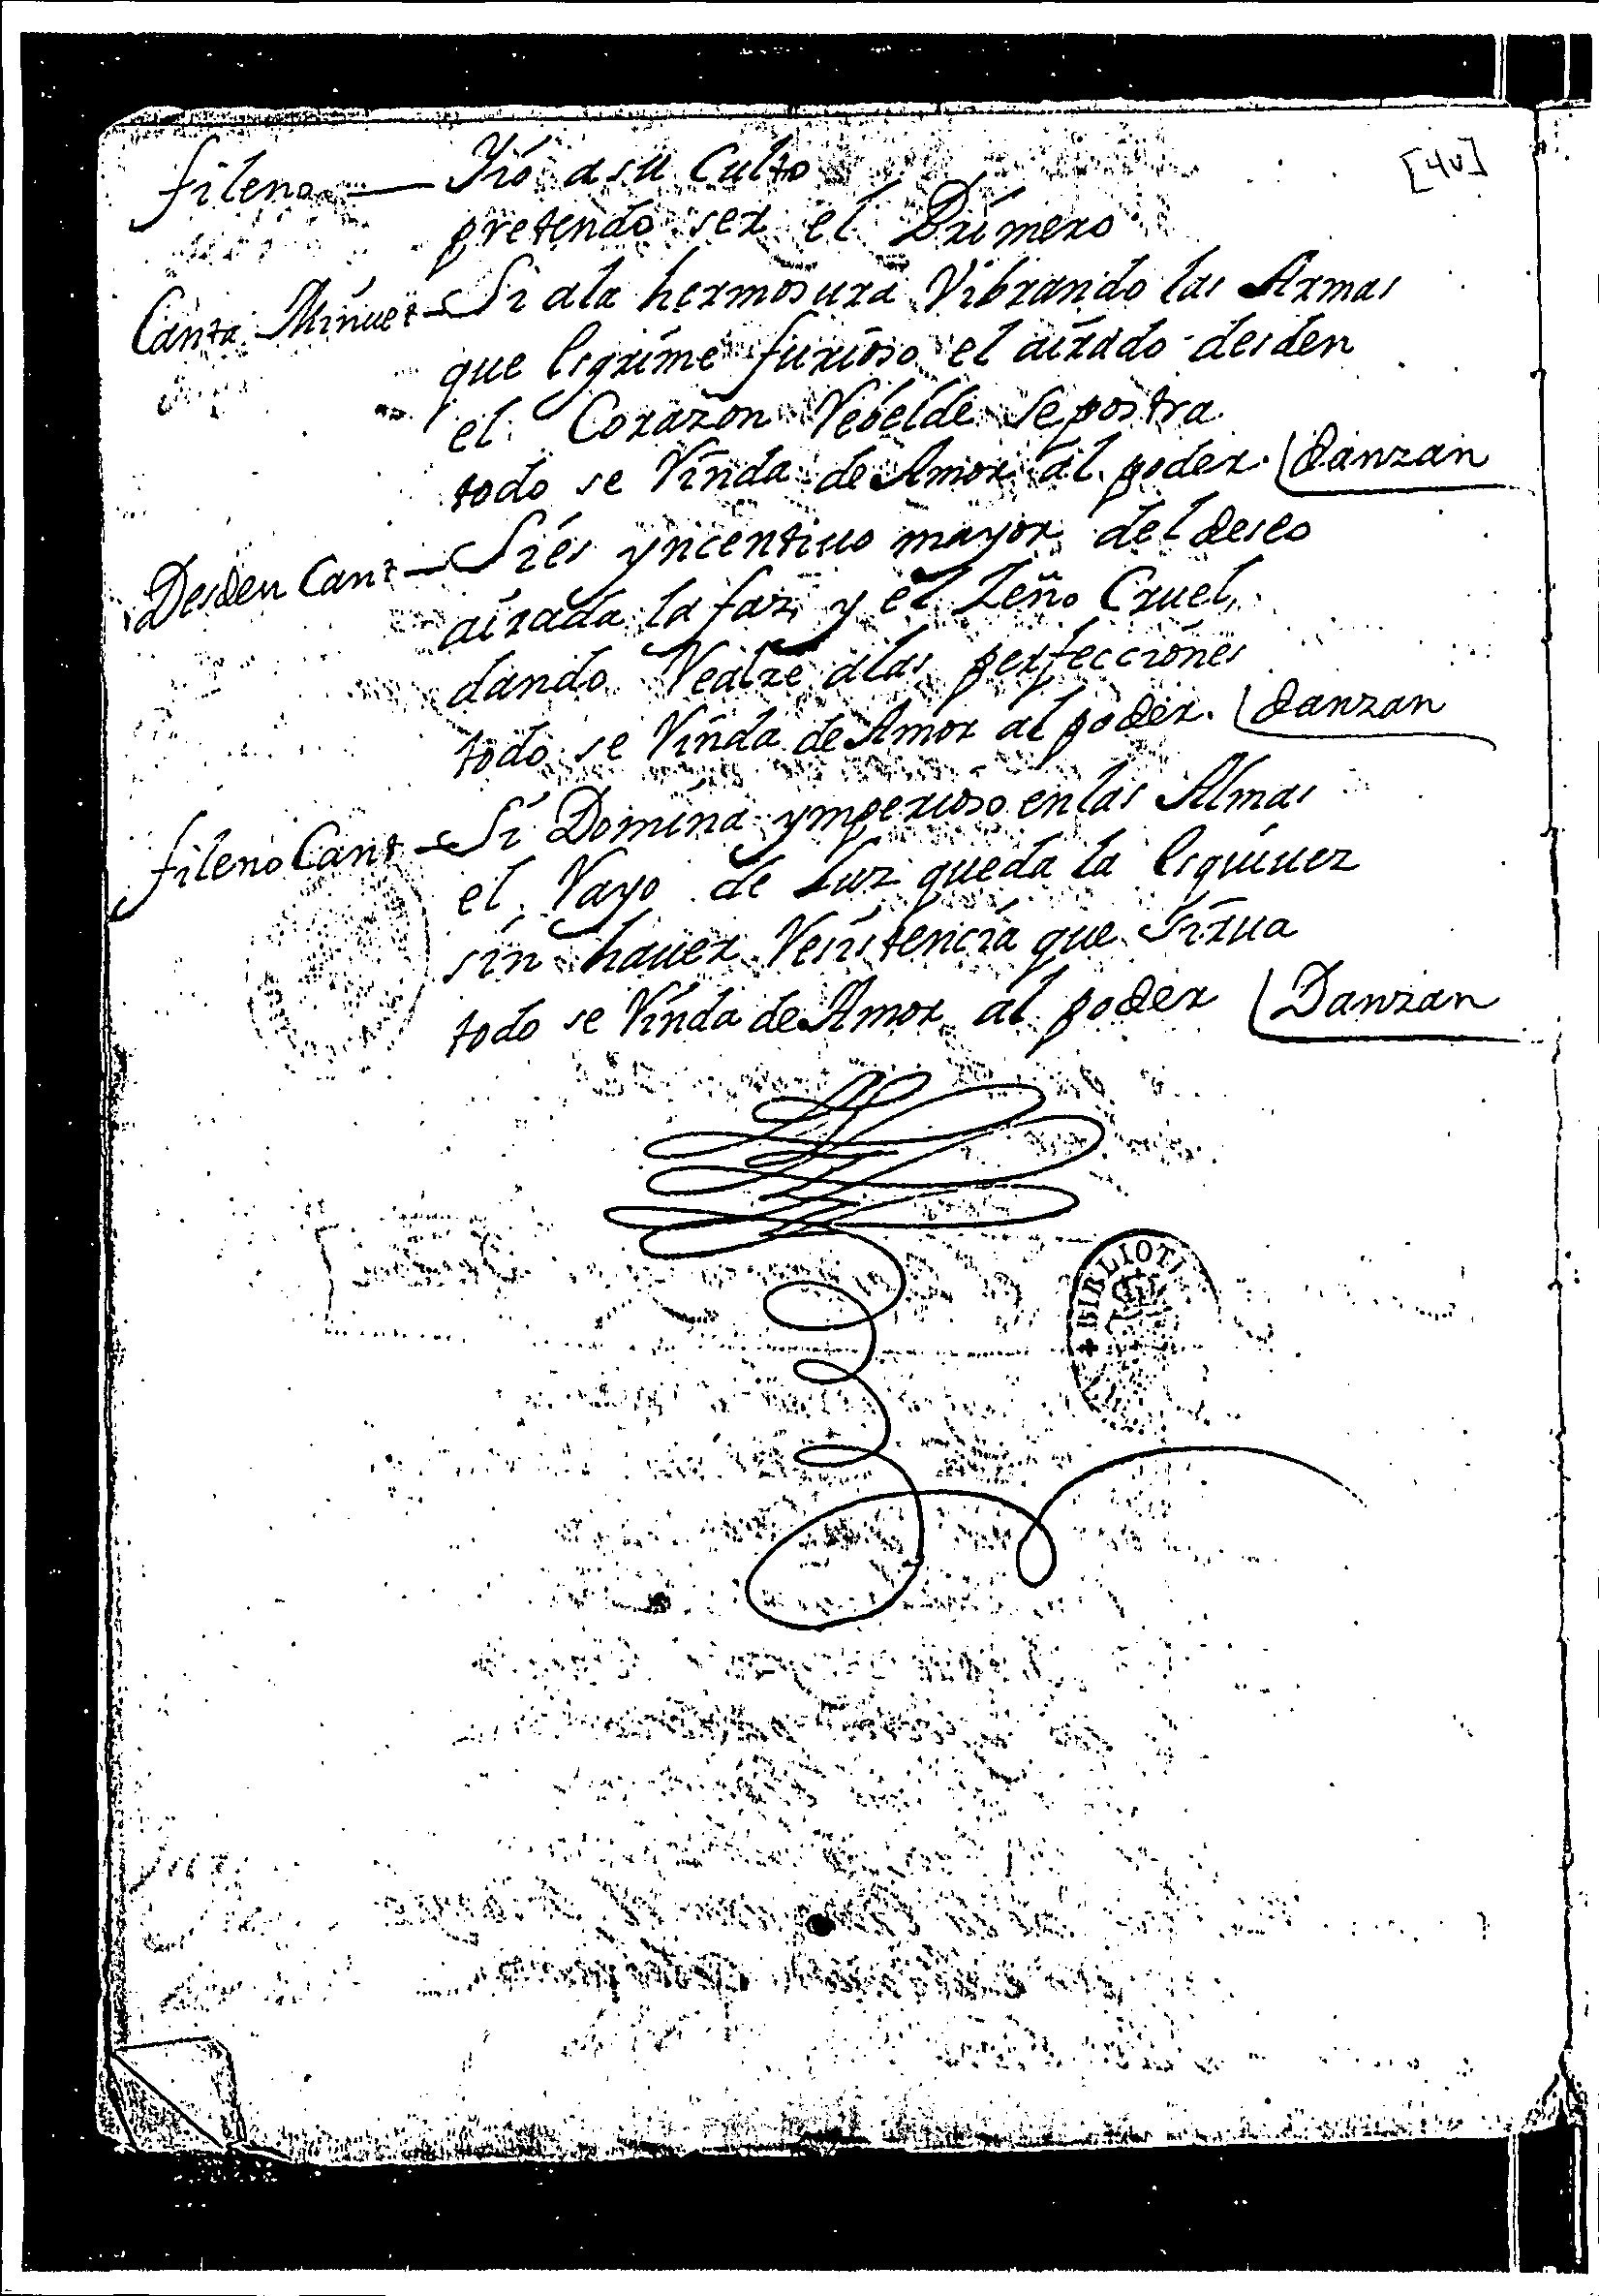 [4v]
fileno — Yió a su Culto
pretendo ser el Primero
Canta Minuet — Si ala hermosura Vibrando las Armas
que esgrime furioso el airado desden
el Corazon Rebelde se postra
todo se Rinda de Amor al poder. danzan
Desden Cant — Si es yncentiuo mayor del deseo
airada la faz, y el Zeño Cruel,
dando Realze alas perfecciones
todo se Rinda de Amor al poder. danzan
fileno Cant — Si Domina ymperioso en las Almas
el Rayo de Luz queda la esquiuez
sin hauer Resistencia que sirua
todo se Rinda de Amor al poder Danzan
BIBLIOT